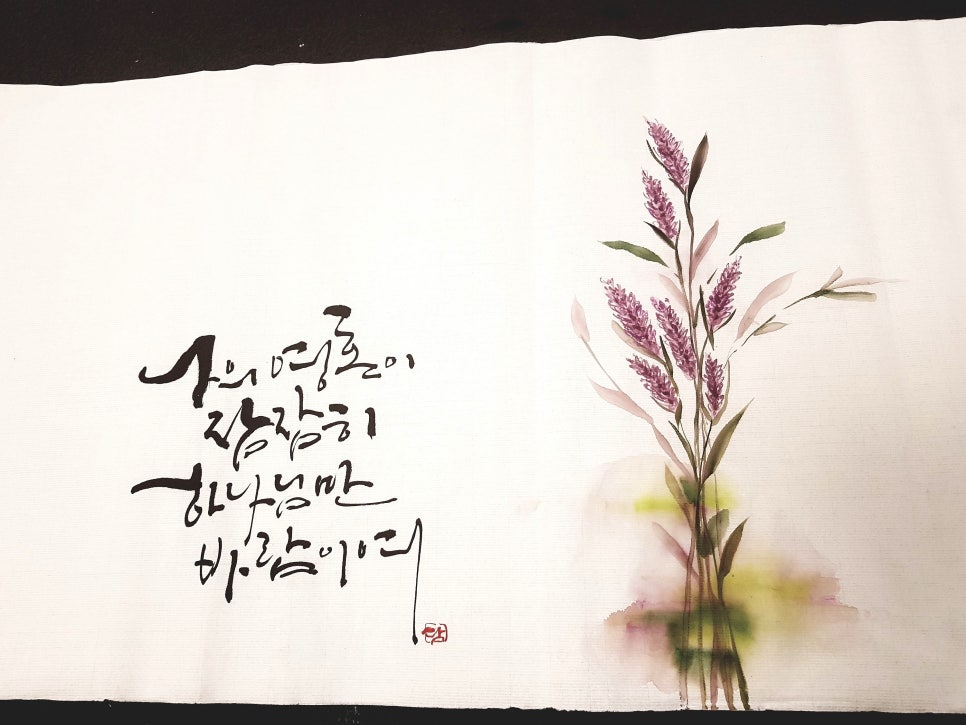 나의 영혼이
잠잠히
하나님만
바람이여